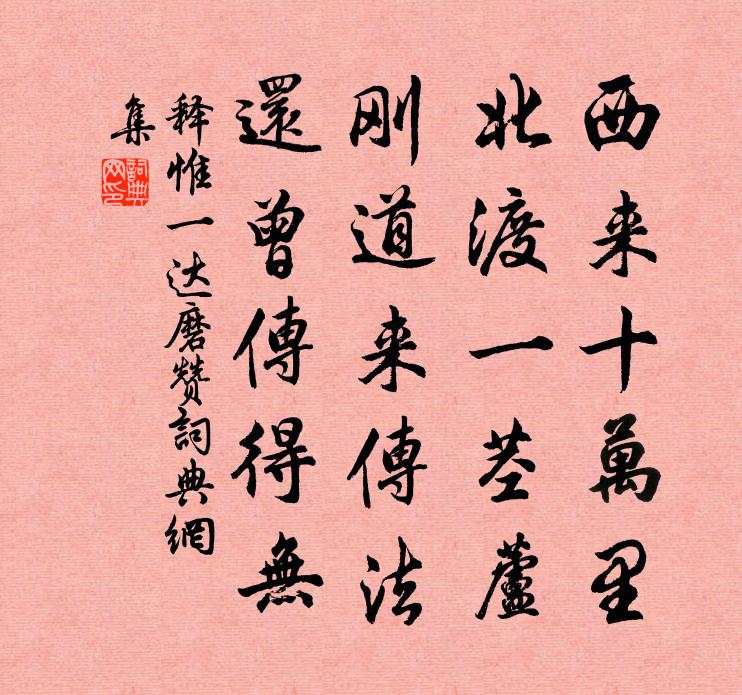 西来十萬里
北渡一茎蘆
刚道来傳法
還曾傳得無
释惟一达磨赞詞典網
集
詞典网印